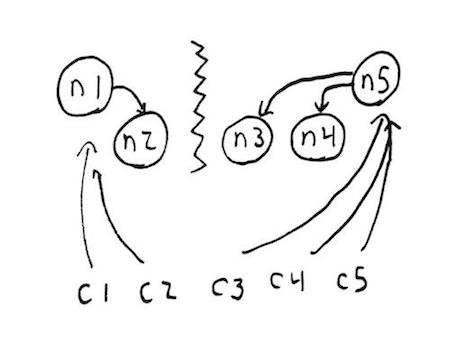 n1 n5
n2 n3 n4
C1 C2 C3 C4 C5